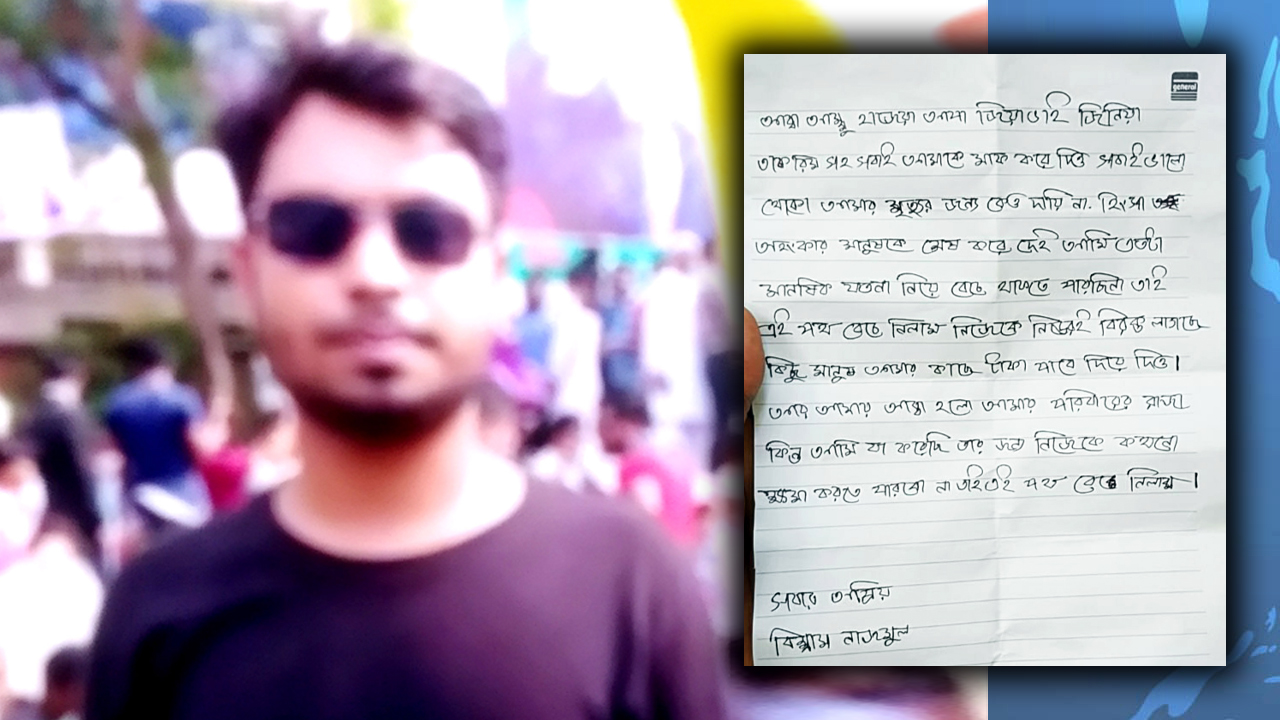 general
আব্বা আম্মু হাজেরা আপা জিয়া ভাই জিনিয়া
তাকরিম সহ সবাই আমাকে মাফ করে দিও সবাই ভালো
থেকো আমার মৃত্যুর জন্য কেও দায়ি না. হিংসা
অহংকার মানুষকে শেষ করে দেই আমি এতটা
মানষিক যতনা নিয়ে বেচে থাকতে পারছিনা তাই
এই পথ বেচে নিলাম নিজেকে নিজেরই বিরক্ত লাগছে
কিছু মানুষ আমার কাছে টাকা পাবে দিয়ে দিও।
আর আমার আব্বা হলো আমার পরিবারের রাজা
কিন্তু আমি যা করেছি তার জন্য নিজেকে কখনো
ক্ষমা করতে পারবো না তাই এই পথ বেচে নিলাম।
সবার অপ্রিয়
বিশ্বাস নাজমুল